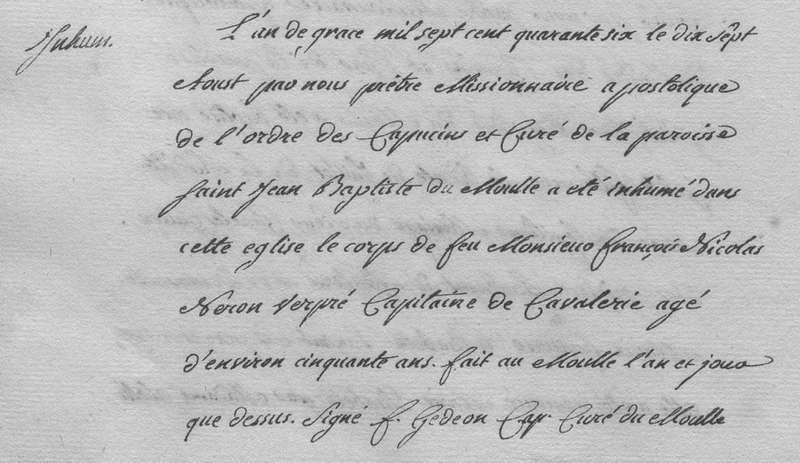 Inhum.
L'an de grace mil sept cent quarante six le dix sept
Aoust par nous prêtre Missionnaire apostolique
de l'ordre des Capucins et Curé de la paroisse
Saint Jean Baptiste du Moulle a eté inhumé dans
cette eglise le corps de feu Monsieur françois Nicolas
Néron Verpré Capitaine de Cavalerie agé
d'environ cinquante ans. fait au Moulle l'an et jour
que dessus. Signé f. Gedeon Cap. Curé du Moulle